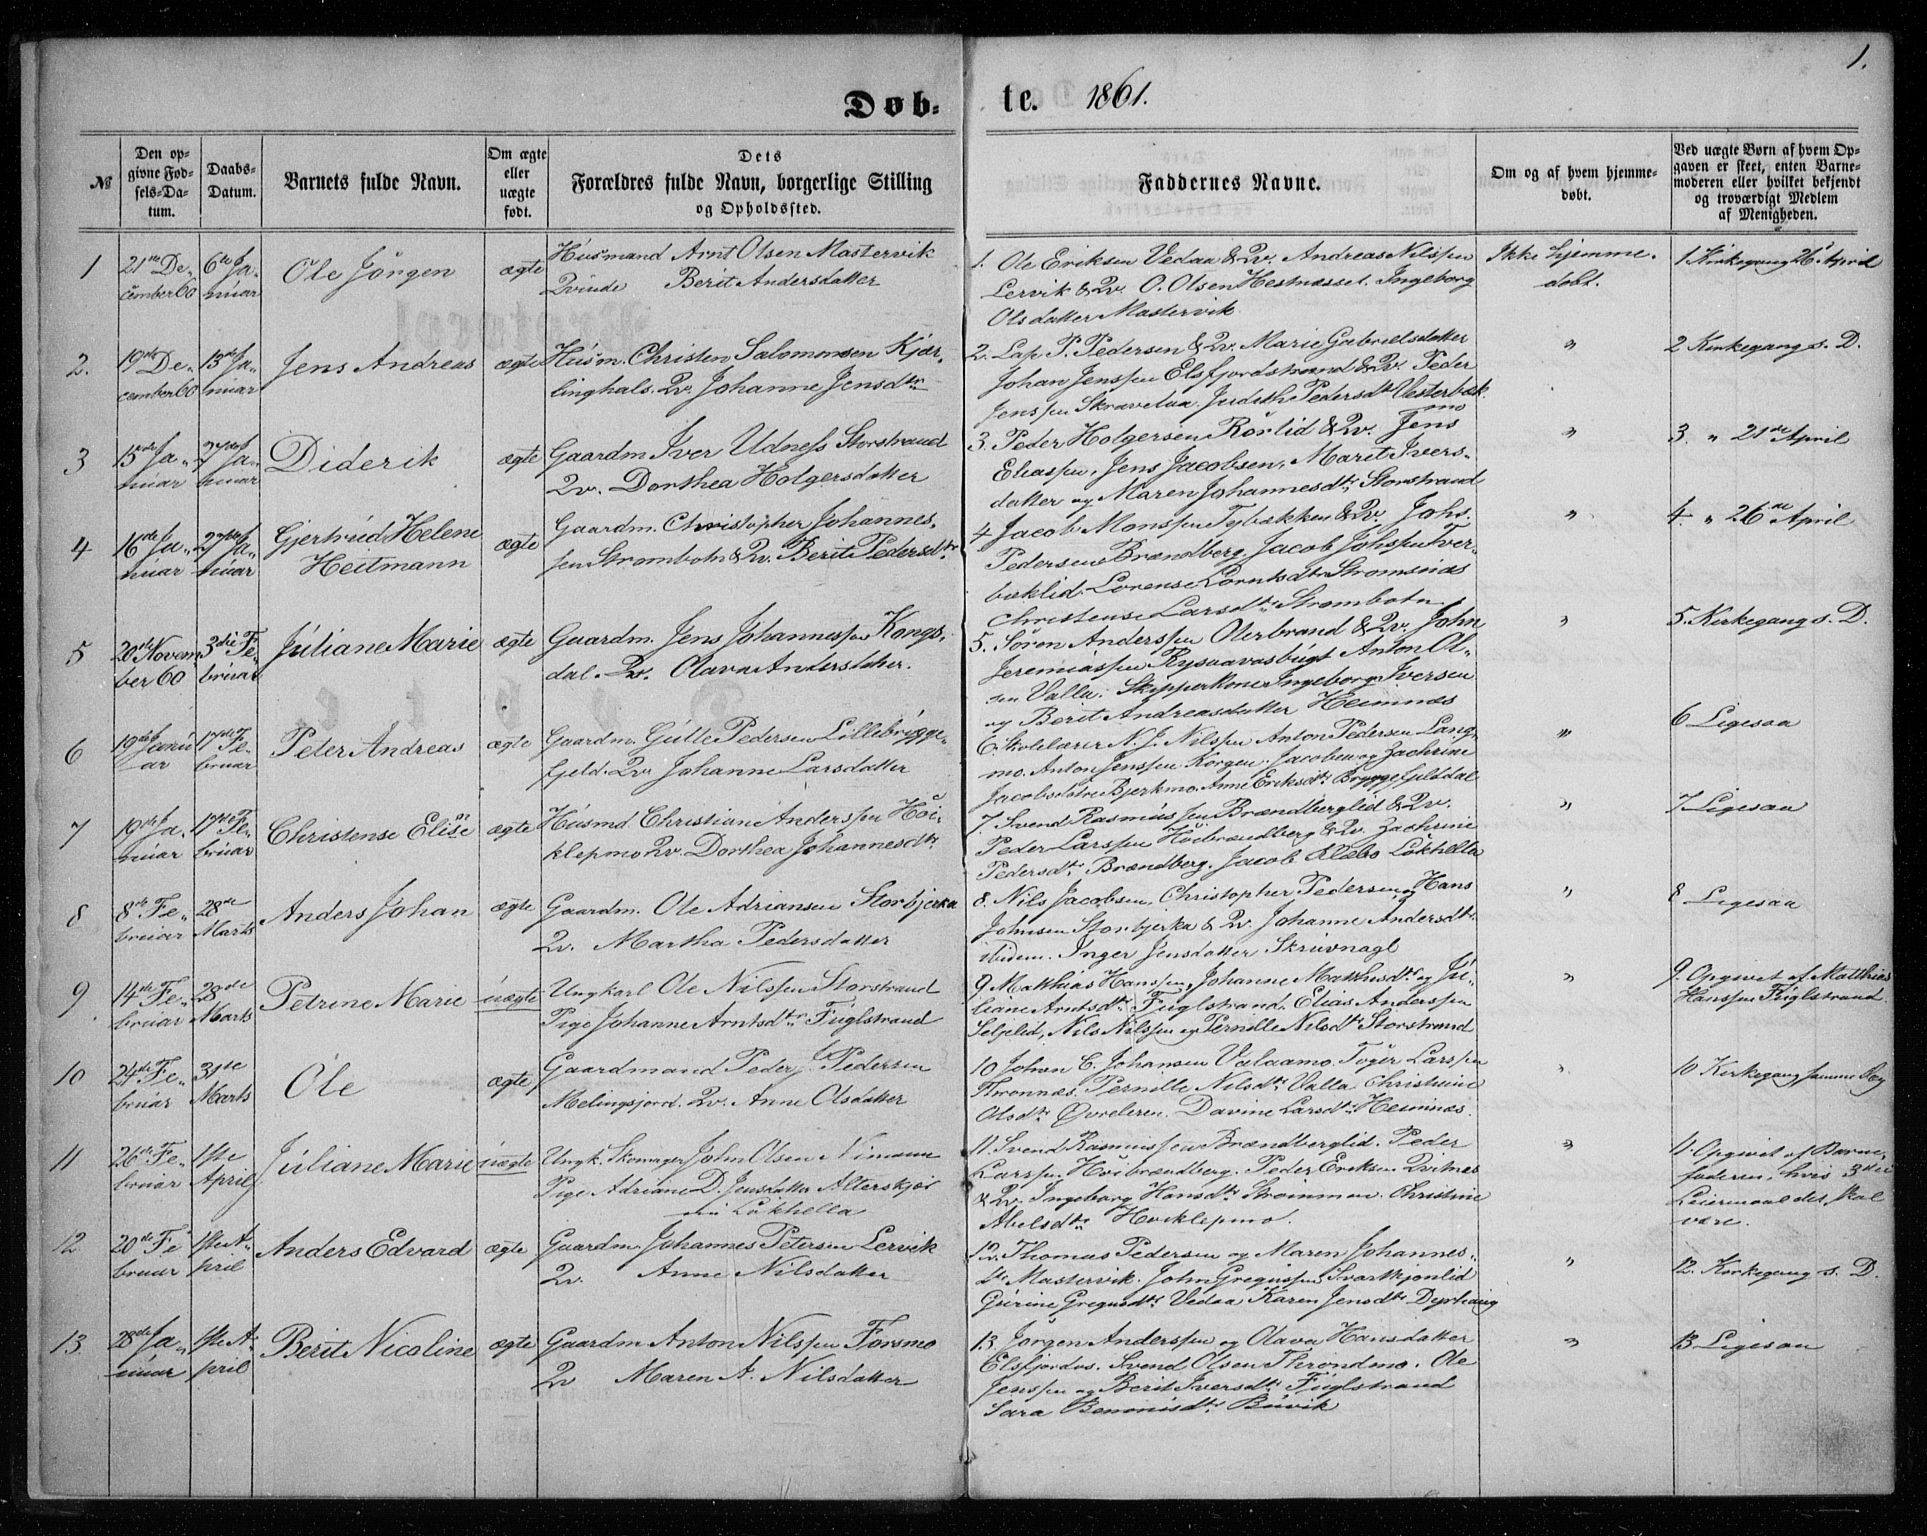 1.
Døb-
te. 1861.
№
Den op-
givne Fød-
sels-Da-
tum.
Daabs-
Datum.
Barnets fulde Navn.
Om ægte
eller
uægte
født.
Dets
Forældres fulde Navn, borgerlige Stilling
og Opholdssted.
Faddernes Navne.
Om og af hvem hjemme-
døbt.
Ved uægte Børn af hvem Op-
gaven er skeet, enten Barne-
moderen eller hvilket bekjendt
og troværdigt Medlem
af Menigheden.
1
21de De-
cember 60
6te Ja-
nuar
Ole Jörgen
ægte
Húsmand Arnt Olsen Mastervik
Qvinde Berit Andersdatter
1. Ole Eriksen Vedaa & Qv. Andreas Nilssen
Lervik & Qv. O. Olsen Hestnæsset. Ingeborg
Olsdatter Mastervik
Ikke hjemme-
døbt.
1 Kirkegang 26 April
2.
19de De-
cember 60
13de Ja-
nuar
Jens Andreas
ægte
Húsm. Christen Salomonsen Kjær-
linghals. Qv. Johanne Jensdtr
2. Lap P. Pedersen & Qv. Marie Gabrielsdatter
Johan Jenssen Elsfjordstrand & Qv. Peder
Jenssen Skravelaa. Judith Pedersdt. Vesterbæk
"
2 Kirkegang s. D.
3
15de Ja-
nuar
27de Ja-
nuar
Diderik
ægte
Gaardm Iver Udness Storstrand
Qv. Dorthea Holgersdatter
3. Peder Holgersen Rörlid & Qv. Jens
Eliassen, Jens Jacobsen, Marit Ivers-
datter og Maren Johannesdt. Storstrand
"
3. " 21de April
4
16de Ja-
nuar
27de Ja-
nuar
Gjertrúd Helene
Heitmann
ægte
Gaardm. Christopher Johannes-
sen Strombotn & Qv. Berit Pedersdtr
4 Jacob Monssen Tybækken & Qv. Johs.
Pedersen Brændberg. Jacob Johssen Tver-
bæklid. Lorense Lorntsdtr Stromsnæs
Christense Larsdtr Strombotn
"
4. " 26de April
5
20de Novem-
ber 60
3die Fe-
bruar
Júliane Marie
ægte
Gaardm. Jens Johannessen Kongs-
dal. Qv. Olava Andersdatter.
5. Søren Anderssen Oterbrand & Qv. John
Jeremiassen Rysaavasbúgt Anton Ol-
sen Valla. Skipperkone Ingeborg Iversen
og Berit Andreasdatter Hemnæs
"
5. Kirkegang s. D.
6
19de Janú-
ar
17de Fe-
bruar
Peter Andreas
ægte
Gaardm. Gútle Pedersen Lillebrygge-
fjeld. Qv. Johanne Larsdatter
6. Skolelærer N. J. Nilssen Anton Pedersen Lang-
mo. Anton Jenssen Korgen. Jacobine og Zachrine
Jacobsdatre Bjerkmo. Anne Eriksdtr Bryggefjelddal
"
6 Ligesaa
7
19de Ja-
nuar
17de Fe-
bruar
Christense Elise
ægte
Húsmd. Christian Anderssen Höi-
klepmo Qv. Dorthea Johannesdtr
7. Svend Rasmússen Brændberglid & Qv.
Peder Larssen Höibrændberg & Qv. Zachrine
Pedersdtr Brændberg. Jacob Klæbo Lökhella
"
7 Ligesaa
8
8de Fe-
bruar
28de
Marts
Anders Johan
ægte
Gaardm. Ole Adriansen Storbjerka
Qv. Martha Pedersdatter
8. Nils Jacobsen, Christopher Pedersen og Hans
Johnsen Storbjerka & Qv. Johanne Andersdtr
ibidem. Inger Jensdatter Skrúvnagl
"
8 Ligesaa
9
14de Fe-
bruar
28de
Marts
Petrine Marie
uægte
Ungkarl Ole Nilssen Storstrand
Pige Johanne Arntsdtr Fúglstrand
9 Matthias Hanssen, Johanne Matthisdtr og Jú-
liane Arntsdtr Fúglstrand. Elias Anderssen
Seljelid, Nils Nilssen og Pernille Nilsdtr Storstrand
"
9. Opgivet af Matthias
Hanssen Fúglstrand.
10
24de Fe-
bruar
31te
Marts
Ole
ægte
Gaardmand Peder J. Pedersen
Melingsjord. Qv. Anne Olsdatter
10 Johan C. Johansen Valaamo. Töger Larssen
Thronnæs. Pernille Nilsdtr Valla Christine
Olsdtr Øvreleren. Davine Larsdtr Hemnæs.
"
10 Kirkegang samme Dag
11
26de Fe-
bruar
1ste
April
Júliane Marie
uægte
Ungk. Skomager John Olsen Nimoen
Pige Adriane D. Jensdatter Alterskjær
nu Lökhella
11. Svend Rasmussen Brændberglid. Peder
Larssen Höibrændberg. Peder Eriksen Qvitnæs
& Qv. Ingeborg Hansdtr Strommen. Christine
Abelsdtr Höiklepmo.
"
11. Opgivet af Barne-
faderen, hvis 3die
Leiermaal det skal
være.
12
20de Fe-
bruar
1ste A-
pril
Anders Edvard
ægte
Gaardm. Johannes Petersen Lervik
Qv. Anne Nilsdatter
12. Thomas Pedersen og Maren Johannes-
dtr Mastervik. John Gregussen Svartkjønlid
Gúrine Gregusdtr Vedaa Karen Jensdtr Dyrhaug
"
12. Kirkegang s. D.
13
28de Ja-
nuar
1ste A-
pril
Berit Nicoline
ægte
Gaardm Anton Nilssen Forsmo
Qv Maren A. Nilsdatter
13 Jørgen Anderssen og Olava Hansdatter
Elsfjordos. Svend Olsen Throndmo. Ole
Jenssen og Berit Iversdtr Fúglstrand
Sara Benonisdtr Búvik
"
13 Ligesaa